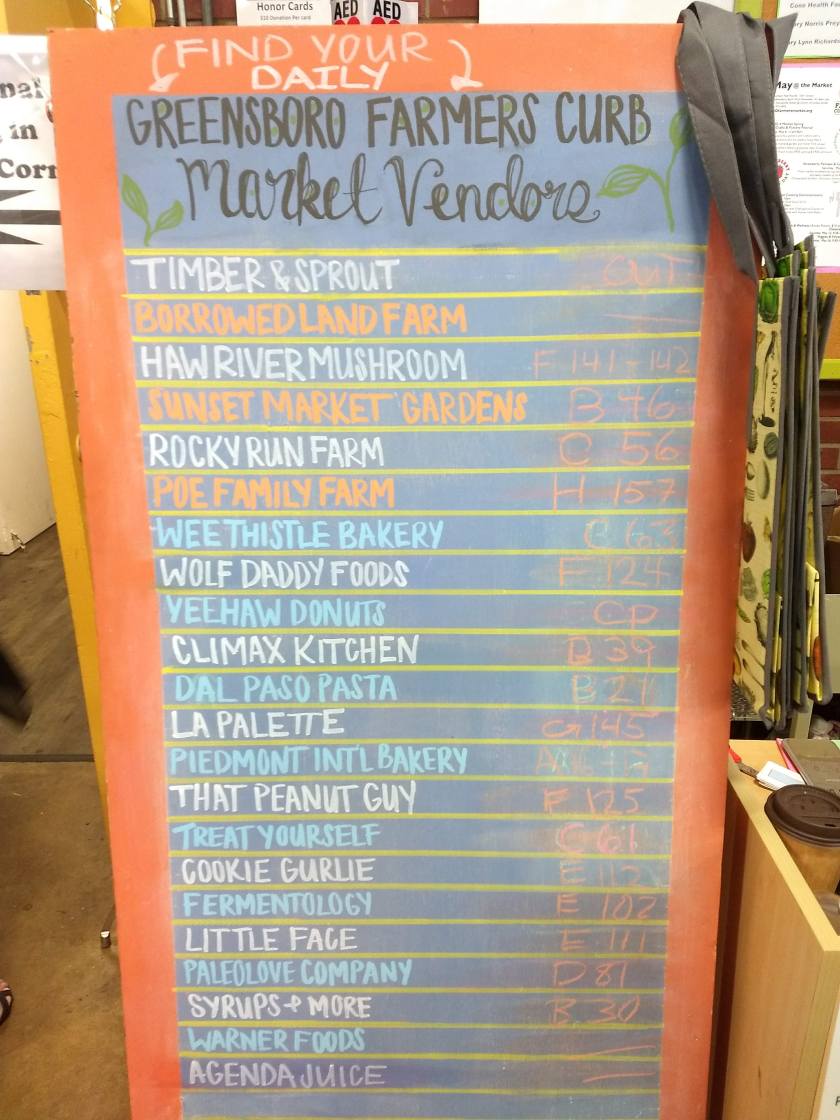 Honor Cards
$10 Donation Per card
AED
AED
Cone Health
ry Norris Prey
ry Lynn Richards
nal
in
Corn
May @ the Market
(FIND YOUR)
DAILY
GREENSBORO FARMERS CURB
Market Vendors
TIMBER & SPROUT OUT
BORROWED LAND FARM —
HAW RIVER MUSHROOM F 141-142
SUNSET MARKET GARDENS B 46
ROCKY RUN FARM C 56
POE FAMILY FARM H 157
WEE THISTLE BAKERY C 63
WOLF DADDY FOODS F 124
YEEHAW DONUTS CP
CLIMAX KITCHEN B 39
DAL PASO PASTA B 21
LA PALETTE G 145
PIEDMONT INT'L BAKERY
THAT PEANUT GUY F 125
TREAT YOURSELF C 61
COOKIE GURLIE E 112
FERMENTOLOGY E 102
LITTLE FACE E 111
PALEOLOVE COMPANY D 81
SYRUPS & MORE B 30
WARNER FOODS —
AGENDA JUICE —